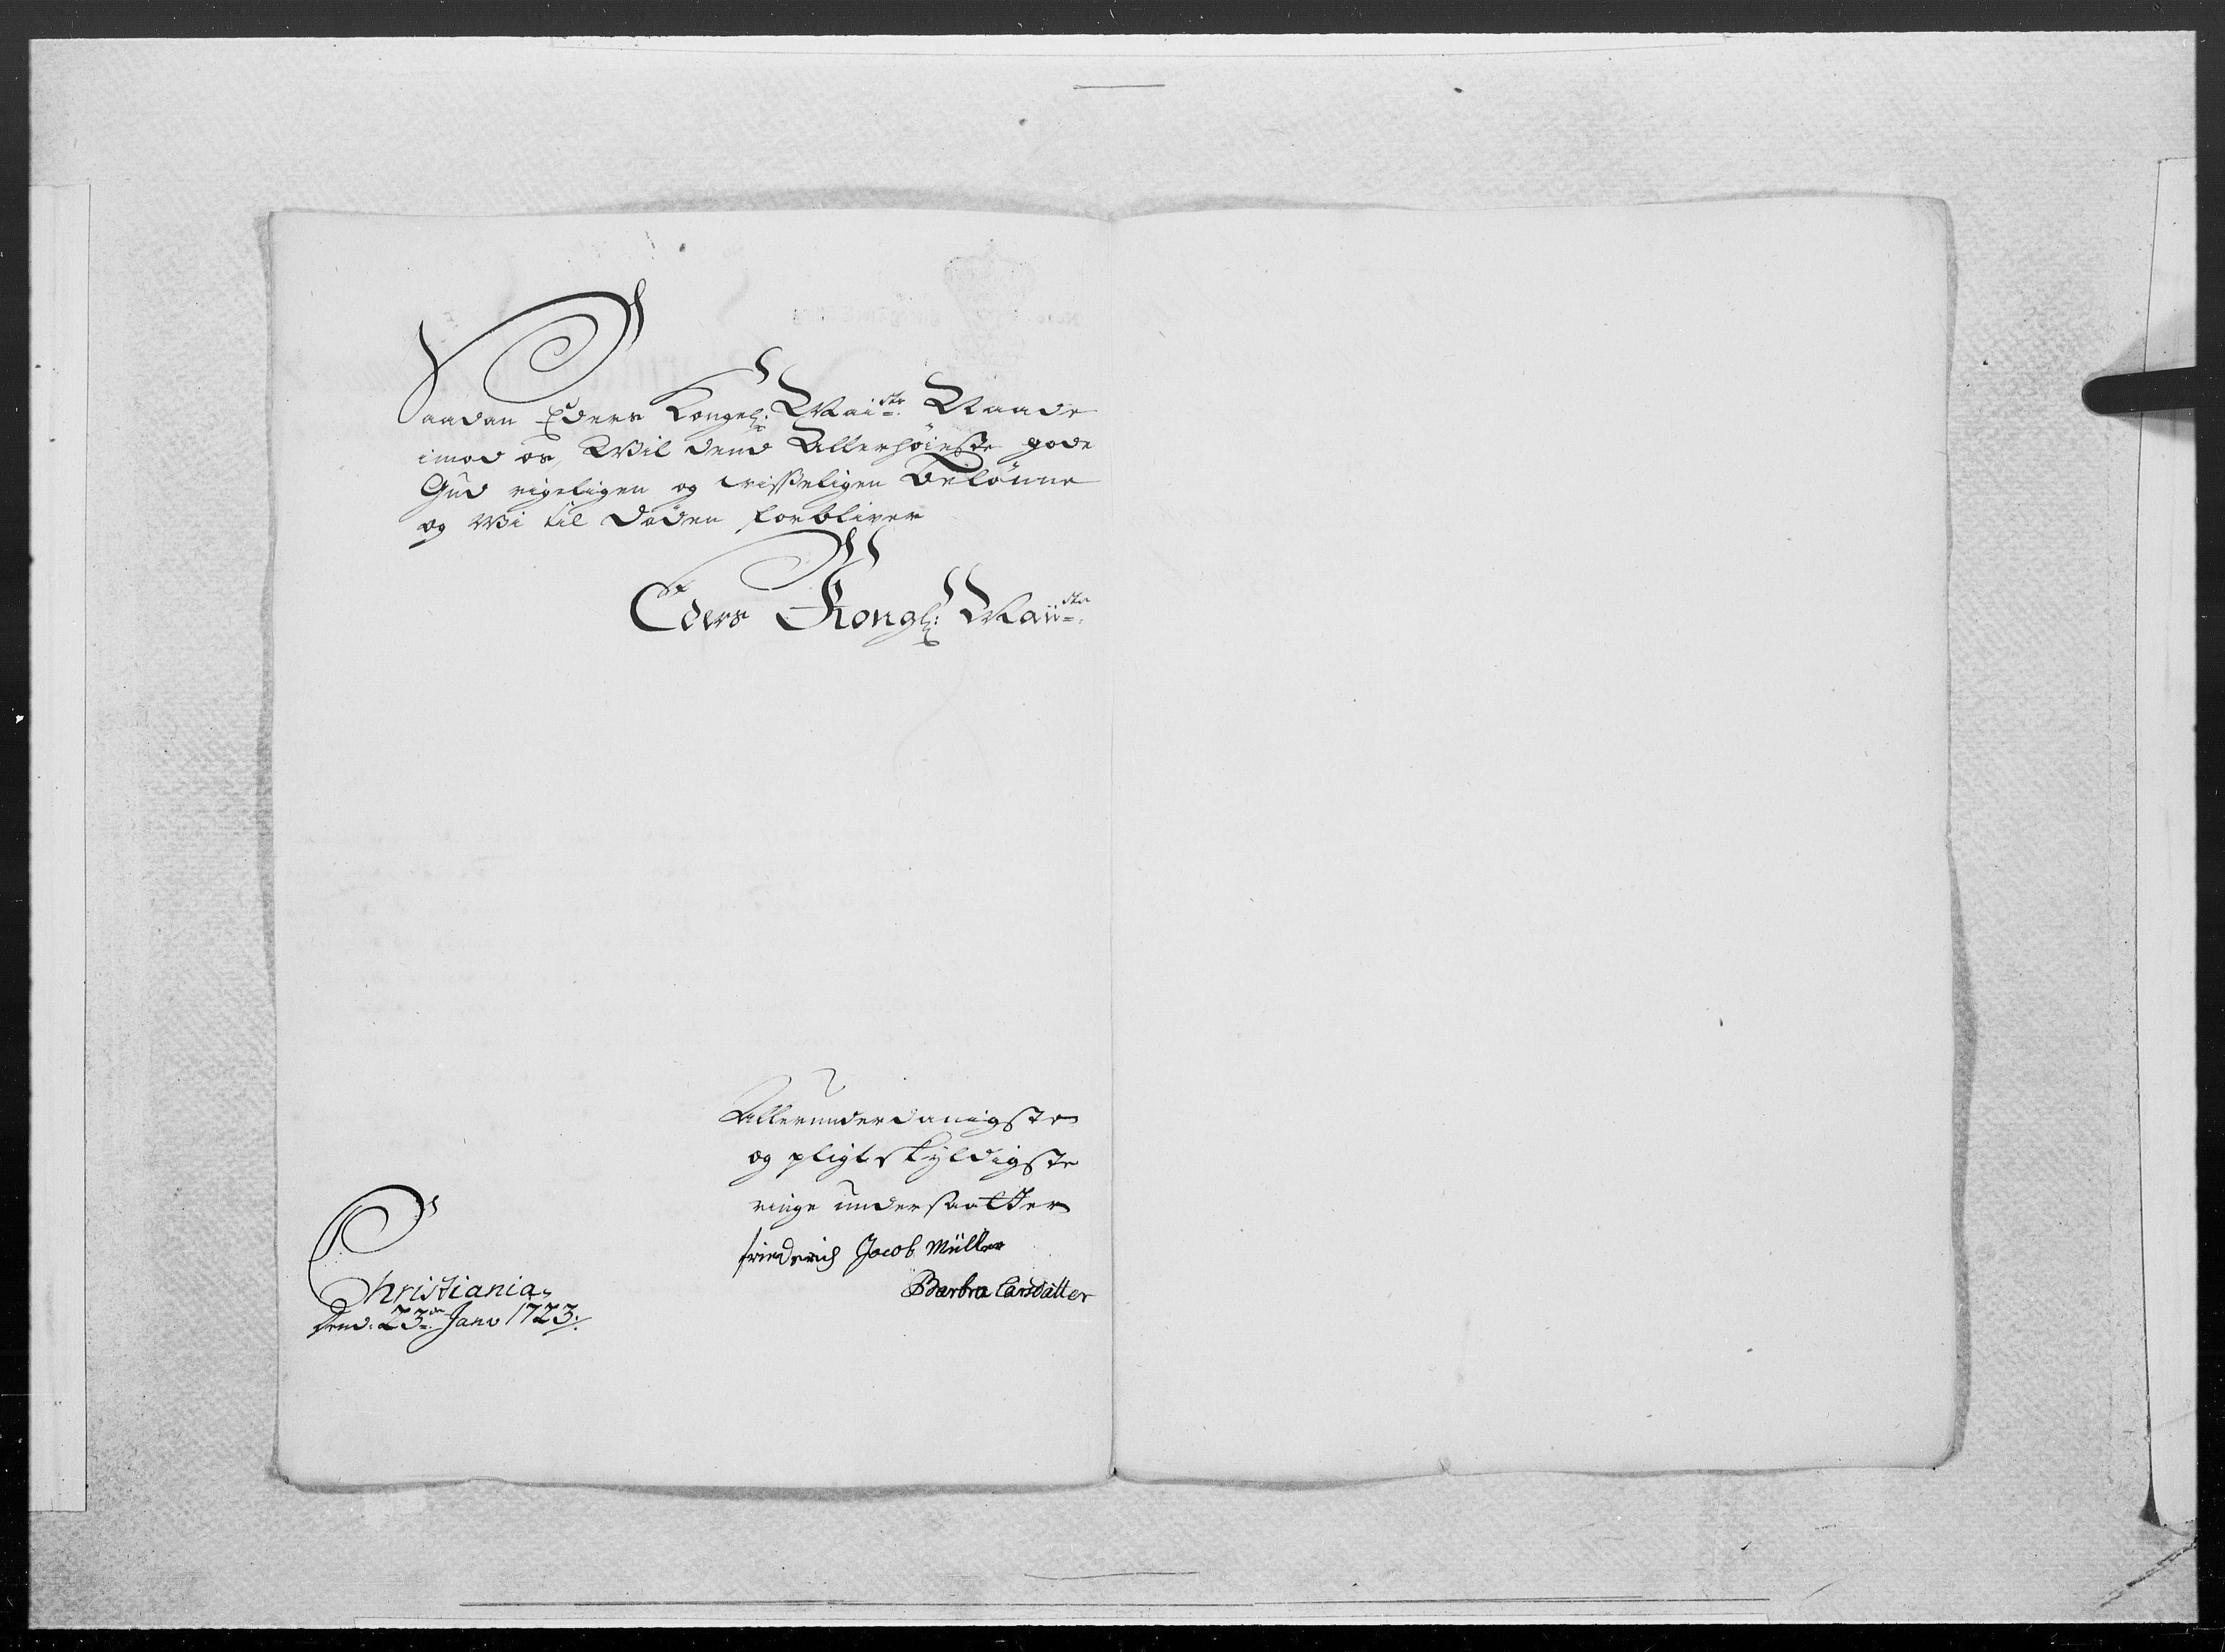 Saadan Eders Kongel: Mai.ste Naade
imod os, Wil dend Allerhöieste gode
Gud rigeligen og wisseligen Belönne
og Wi til döden forbliver
Eders Kongl: Maii.sts
Allerunderdanigste
og pligtskyldigste
ringe undersaatter
friederich Jacob Müller
Barbra Larsdatter
Christiania
Dend. 23.de Janv 1723.